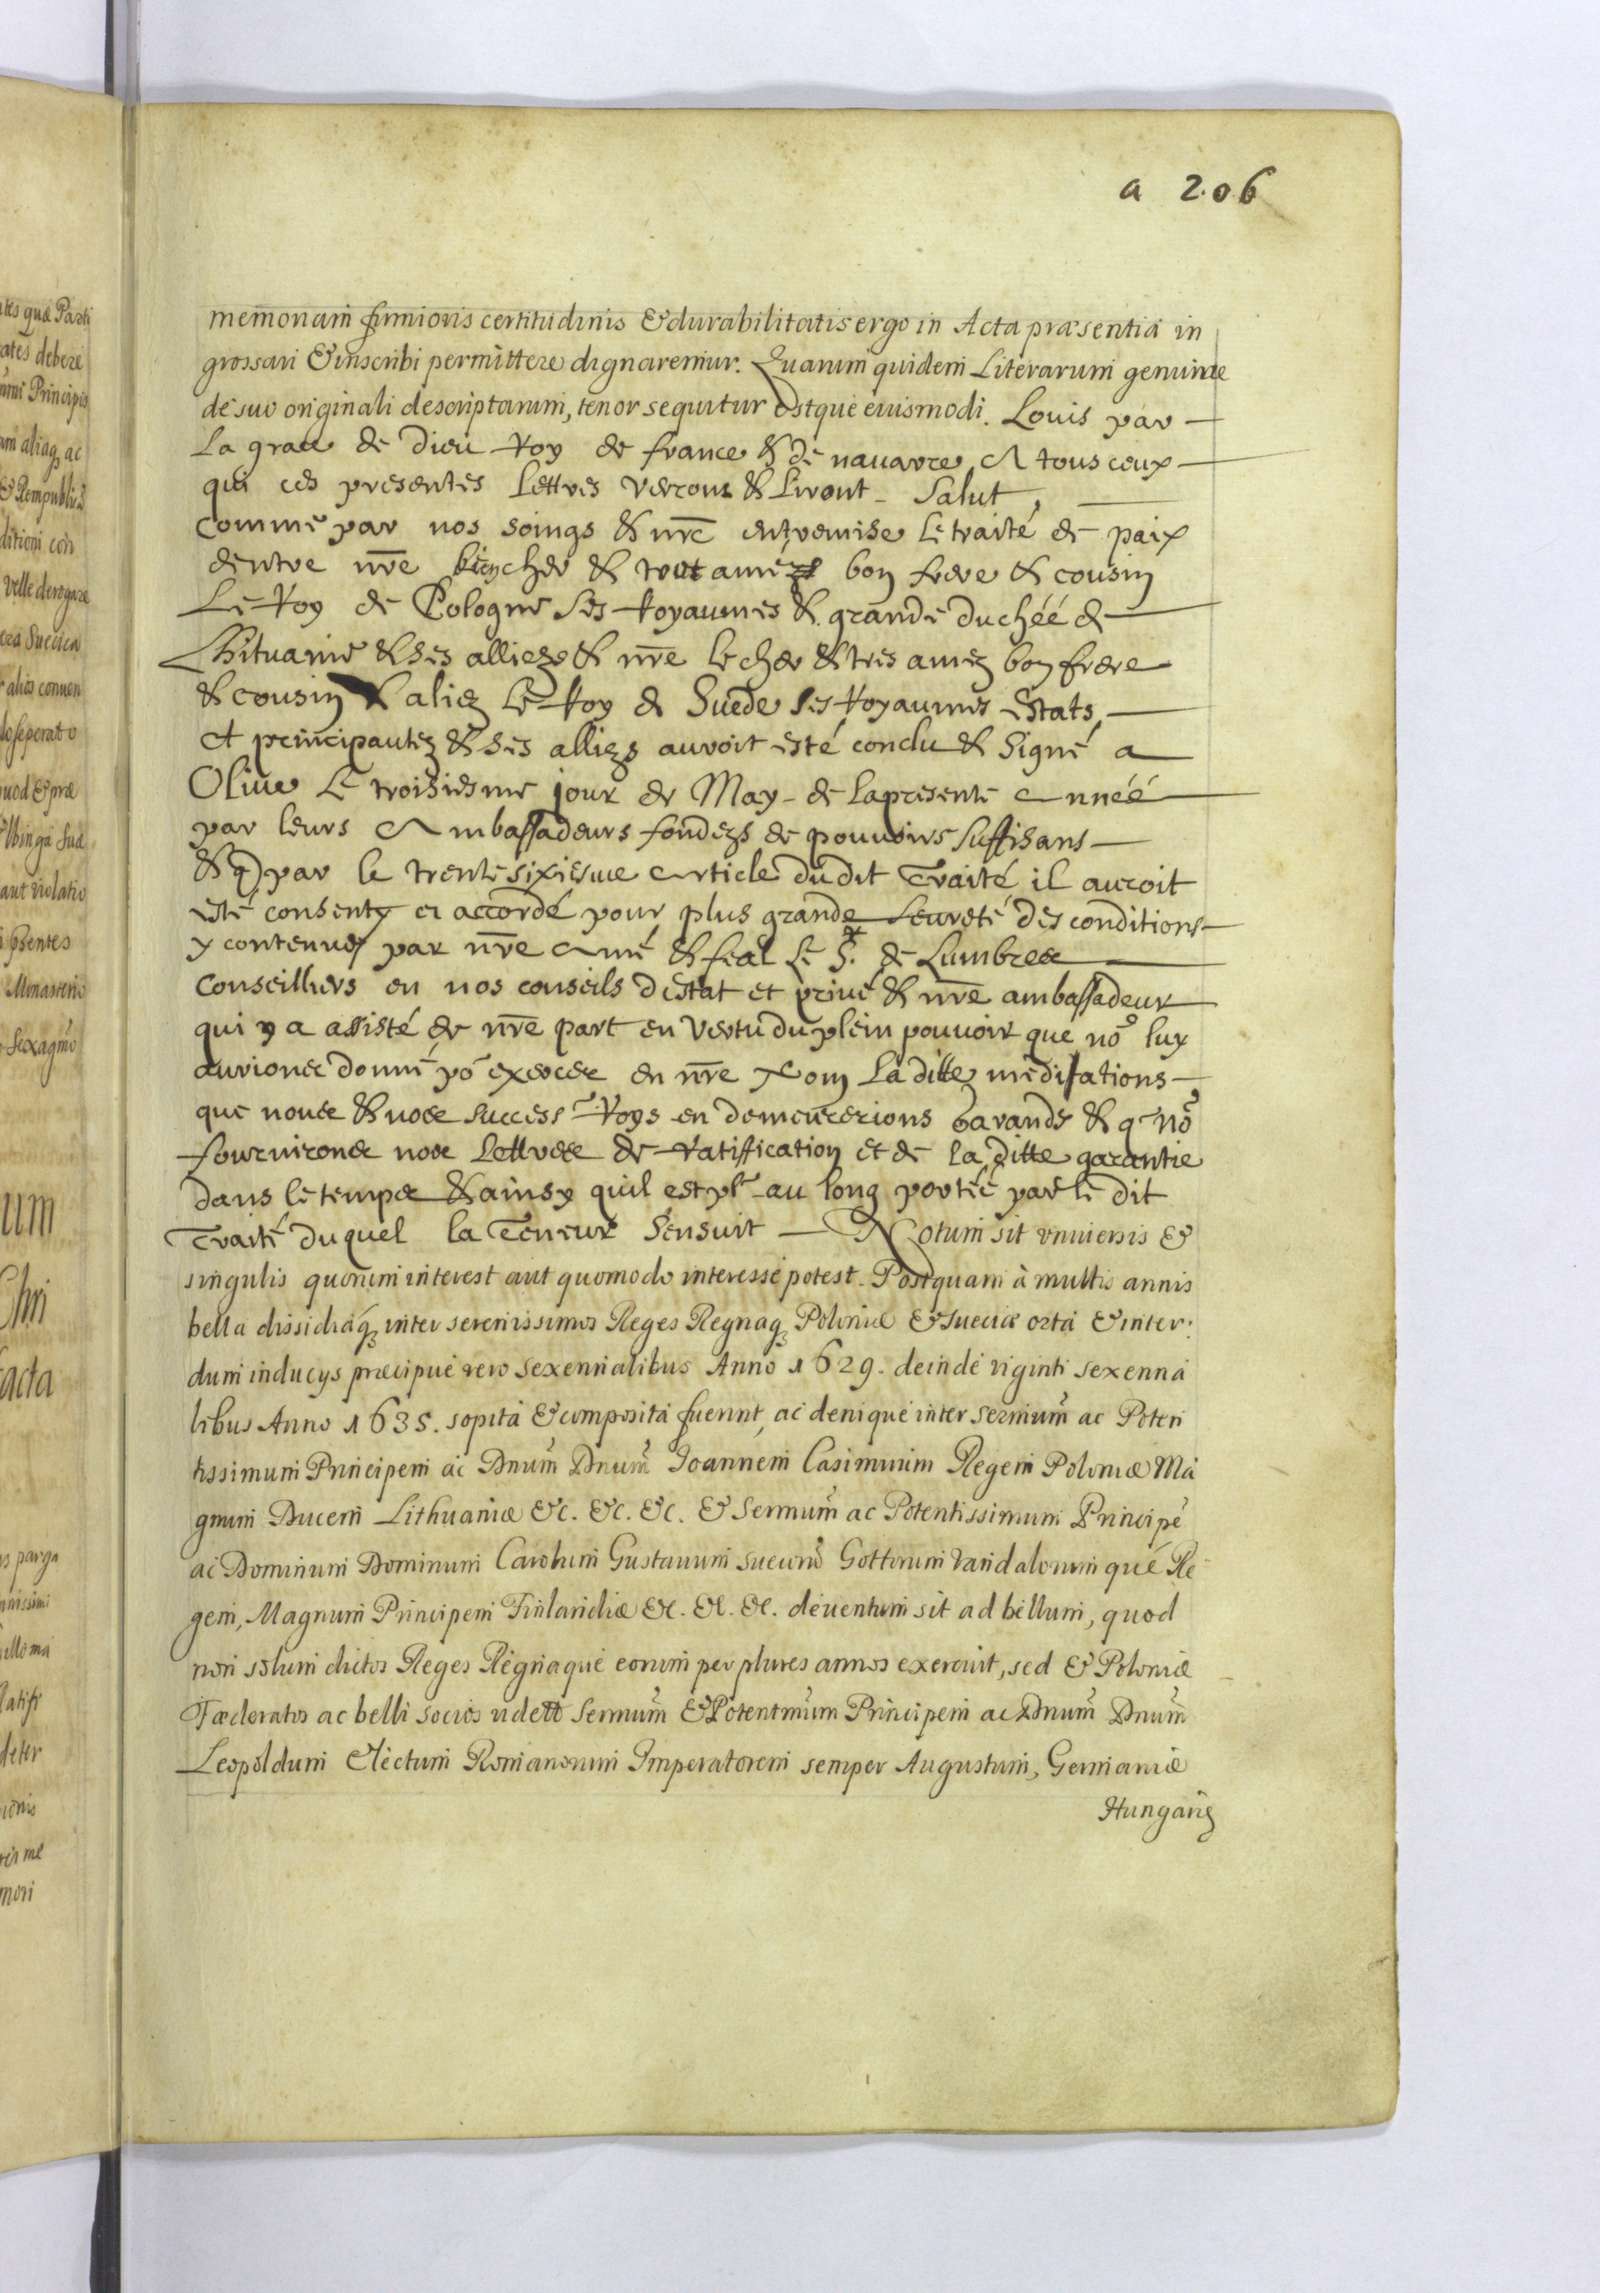 a 206
memoriam firmioris certitudinis & durabilitatis ergo in Acta præsentia in
grossari & inscribi permittere dignaremur. Quarum quidem Literarum genuine
de suo originali descriptarum, tenor sequitur estque eiusmodi. Louis par
La grace de Dieu Roy de france & de nauarre A tous ceux
qui ces presentes lettres verrons & liront Salut,
comme par nos soings & nr̃e entremise le traité de paix
dentre nr̃e bien cher & tout amé bon frere & cousin
Le Roy de Pologne ses Royaumes & grande duchéé de
Lhituanie & ses alliezs & nr̃e le cher & tres amez bon frere
& cousin & aliez Le Roy de Suede ses Royaumes estats,
et principautez & ses alliezs auroit esté conclu & signé a
Oliue Le troisiesme jour de May de la presente Annéé
par leurs Ambassadeurs fondezs de pouuoirs suffisans
& q par le trente sixiesme article dudit Traité il auroit
esté consenty et accordé pour plus grande seureté des conditions
y contenues par nr̃e Amé & feal Le Sr. de Lumbres
Conseilliers en nos conseils destat et priué & nr̃e ambassadeur
qui y a assisté de nr̃e part en vertu du plein pouuoir que no9 luy
aurions donné po exercer en nr̃e Nom la ditte medi[ations
que nous & nos success.r Roys en demeurerions Garands & q no9
fournirons nos Lettres de Ratiffication et de la ditte garantie
dans le temps & ainsy quil est pl9 au long portéé par le dit
Traité duquel la Teneur sensuit Notum sit vniuersis &
singulis quorum interest aut quomodo interesse potest. Postquam à multis annis
bella dissidiaq3 inter serenissimos Reges Regnaq3 Poloniæ & Sueciæ orta & inter:
dum inducys præcipue vero sexennalibus Anno 1629. deinde viginti sexenna
libus Anno 1635. sopita & composita fuerint, ac denique inter sermum ac Poten
tissimum Principem ac Dnum Dnum Joannem Casimirum Regem Poloniæ Ma
gnum Ducem Lithuaniæ &c. &c. &c. & Sermum ac Potentissimum Principē
ac Dominum Dominum Carolum Gustauum suecorũ Gottorum Vandalorum que Re
gem, Magnum Principem Finlandiæ &c. &c. &c. deuentum sit ad bellum, quod
non solum dictos Reges Regnaque eorum per plures annos exercuit, sed & Poloniæ
Fœderatos ac belli socios vidett Sermum & Potentmum Principem ac Dnum Dnum
Leopoldum Electum Romanorum Imperatorem semper Augustum, Germaniæ
Hungariæ